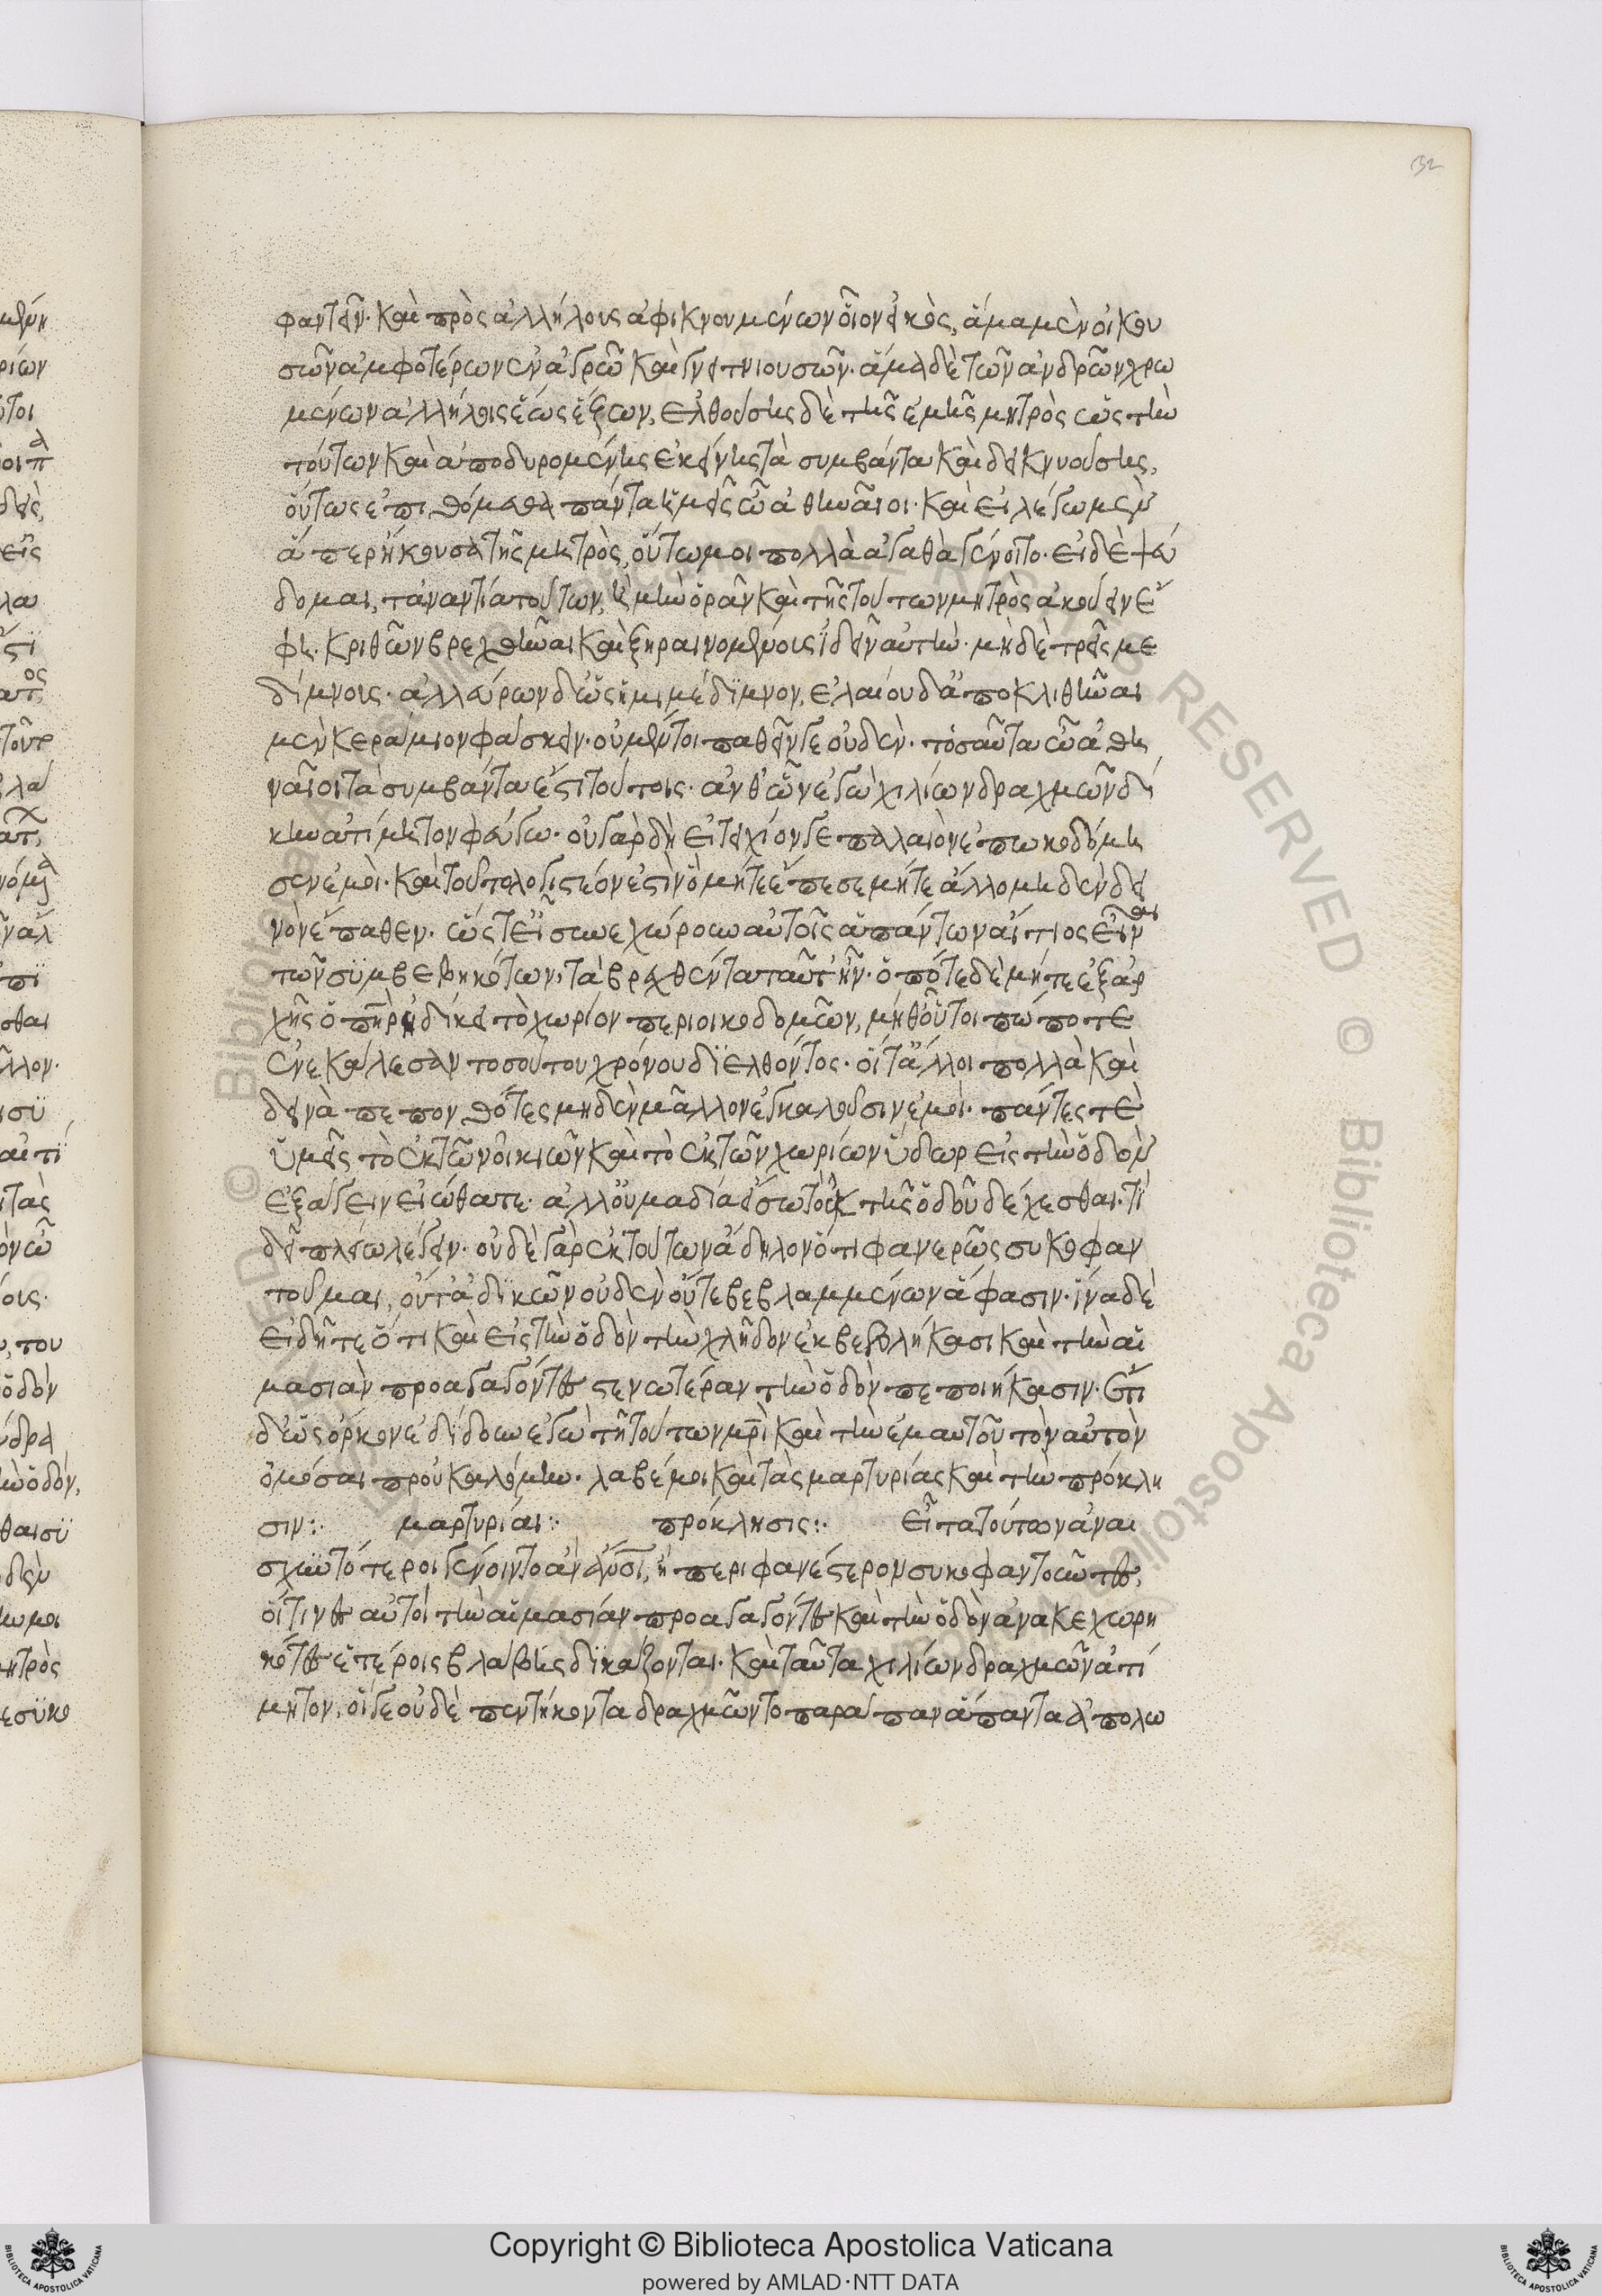 132
φαντεῖν· καὶ πρὸς ἀλλήλους ἀφικνουμένων οἷον εἰκὸς, ἅμα μὲν οἰκου
σῶν ἀμφοτέρων ἐν ἀγρῶ καὶ γειτνιουσῶν· ἅμα δὲ τῶν ἀνδρῶν χρω
μένων ἀλλήλοις ἕως ἔζων, ἐλθούσης δὲ τῆς ἐμῆς μητρὸς ὡς τὴν
τούτων καὶ ἀποδυρομένης ἐκείνης τὰ συμβάντα καὶ δεικνυούσης,
οὕτως ἐπιθόμεθα πάντα ἡμεῖς ὦ ἀθηναῖοι· καὶ εἰ λέγω μὲν
ἅπερ ἤκουσα τῆς μητρὸς, οὕτω μοι πολλὰ ἀγαθὰ γένοιτο· εἰ δὲ ψεύ
δομαι, τἀναντία τούτων, ἦ μὴν ὁρᾶν καὶ τῆς τούτων μητρὸς ἀκούειν ἔ
φη. κριθῶν βρεχθῆναι καὶ ξηραινομένους ἰδεῖν αὐτὴν· μηδὲ τρεῖς με
δίμνους· ἀλεύρων δ' ὡς ἡμιμέδιμνον, ἐλαίου δ' ἀποκλιθῆναι
μὲν κεράμιον φάσκειν· οὐ μέντοι παθεῖν γε οὐδέν· τοσαῦτα ὦ ἀθη
ναῖοι τὰ συμβάντα ἐστὶ τούτοις· ἀνθ' ὧν ἐγὼ χιλίων δραχμῶν δί
κην ἀτίμητον φεύγω· οὐ γὰρ δὴ εἰ τειχίον γε παλαιὸν ἐπωκοδόμη
σεν ἐμοὶ· καὶ τοῦτο λογιστέον ἐστὶν ὃ μήτε ἔπεσε μήτε ἄλλο μηδὲν δει
νὸν ἔπαθεν· ὥστ' εἰ συνεχώρουν αὐτοῖς ἁπάντων αἴτιος εἶναι
τῶν συμβεβηκότων, τὰ βρεχθέντα ταῦτ' ἦν· ὁπότε δὲ μήτε ἐξ ἀρ
χῆς ὁ πατὴρ ἠδίκει τὸ χωρίον περιοικοδομῶν, μήθ' οὗτοι πώποτε
ἐνεκάλεσαν τοσούτου χρόνου διελθόντος· οἵ τ' ἄλλοι πολλὰ καὶ
δεινὰ πεπονθότες μηδὲν μᾶλλον ἐγκαλοῦσιν ἐμοὶ· πάντες τὲ
ὑμεῖς τὸ ἐκ τῶν οἰκιῶν καὶ τὸ ἐκ τῶν χωρίων ὕδωρ εἰς τὴν ὁδὸν
ἐξάγειν εἰώθατε· ἀλλ' οὐ μὰ δία εἴσω τὸ ἐκ τῆς ὁδοῦ δέχεσθαι· τί
δεῖ πλείω λέγειν· οὐδὲ γὰρ ἐκ τούτων ἄδηλον ὅτι φανερῶς συκοφαν
τοῦμαι, οὔτ' ἀδικῶν οὐδὲν οὔτε βεβλαμμένων ἅ φασιν· ἵνα δὲ
εἰδῆτε ὅτι καὶ εἰς τὴν ὁδὸν τὴν χλῆδον ἐκβεβλήκασι καὶ τὴν αἱ
μασιὰν προαγαγόντες στενωτέραν τὴν ὁδὸν πεποιήκασιν· ἔτι
δ' ὡς ὅρκον ἐδίδουν ἐγὼ τῆ τούτων μρὶ καὶ τὴν ἐμαυτοῦ τὸν αὐτὸν
ὀμόσαι προὐκαλούμην. λαβέ μοι καὶ τὰς μαρτυρίας καὶ τὴν πρόκλη
σιν:· μαρτυρίαι:· πρόκλησις:· εἶτα τούτων ἀναι
σχυντότεροι γένοιντο ἂν εὖσι, ἢ περιφανέστερον συκοφαντοῦντες,
οἵτινες αὐτοὶ τὴν αἱμασιὰν προαγαγόντες καὶ τὴν ὁδὸν ἀνακεχωρη
κότες ἑτέροις βλάβης δικάζονται· καὶ ταῦτα χιλίων δραχμῶν ἀτί
μητον, οἵ γε οὐδὲ πεντήκοντα δραχμῶν τοπαράπαν ἅπαντα ἀπολω
© Biblioteca Apostolica Vaticana
RESERVED
Copyright © Biblioteca Apostolica Vaticana
powered by AMLAD·NTT DATA